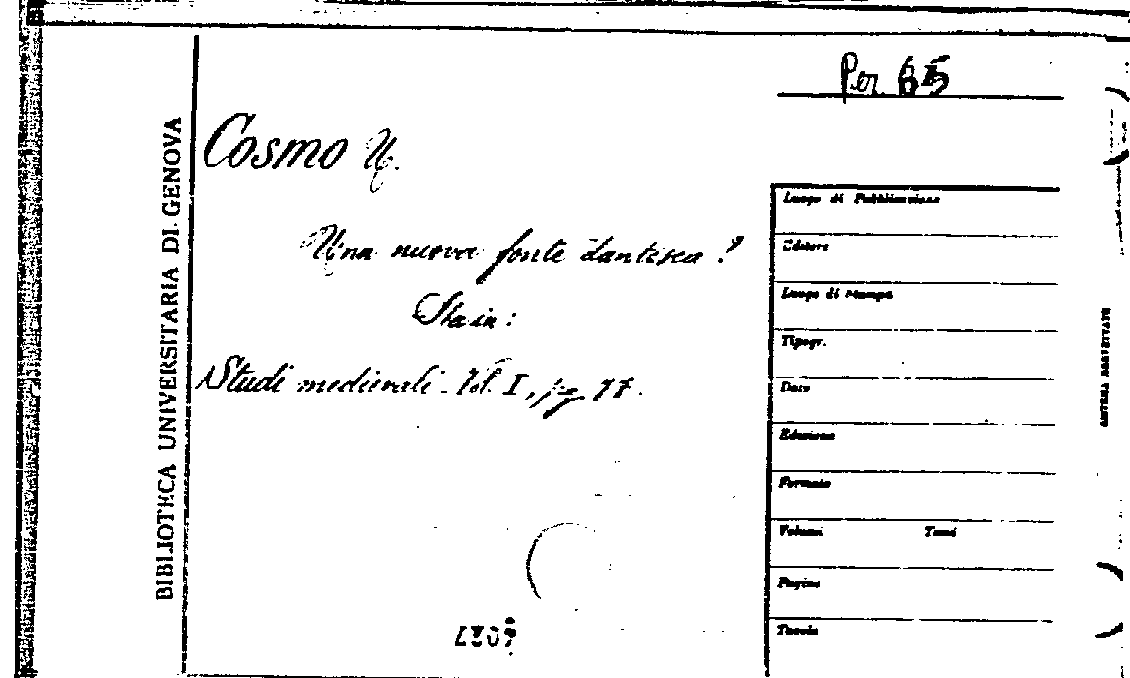 Per 65
BIBLIOTECA UNIVERSITARIA DI GENOVA
Cosmo U.
Una nuova fonte dantesca?
Sta in:
Studi medievali - Vol. I, pg. 77.
Luogo di Pubblicazione
Editore
Luogo di Stampa
Tipogr.
Data
Edizione
Formato
Volumi Tomi
Pagine
Tavole